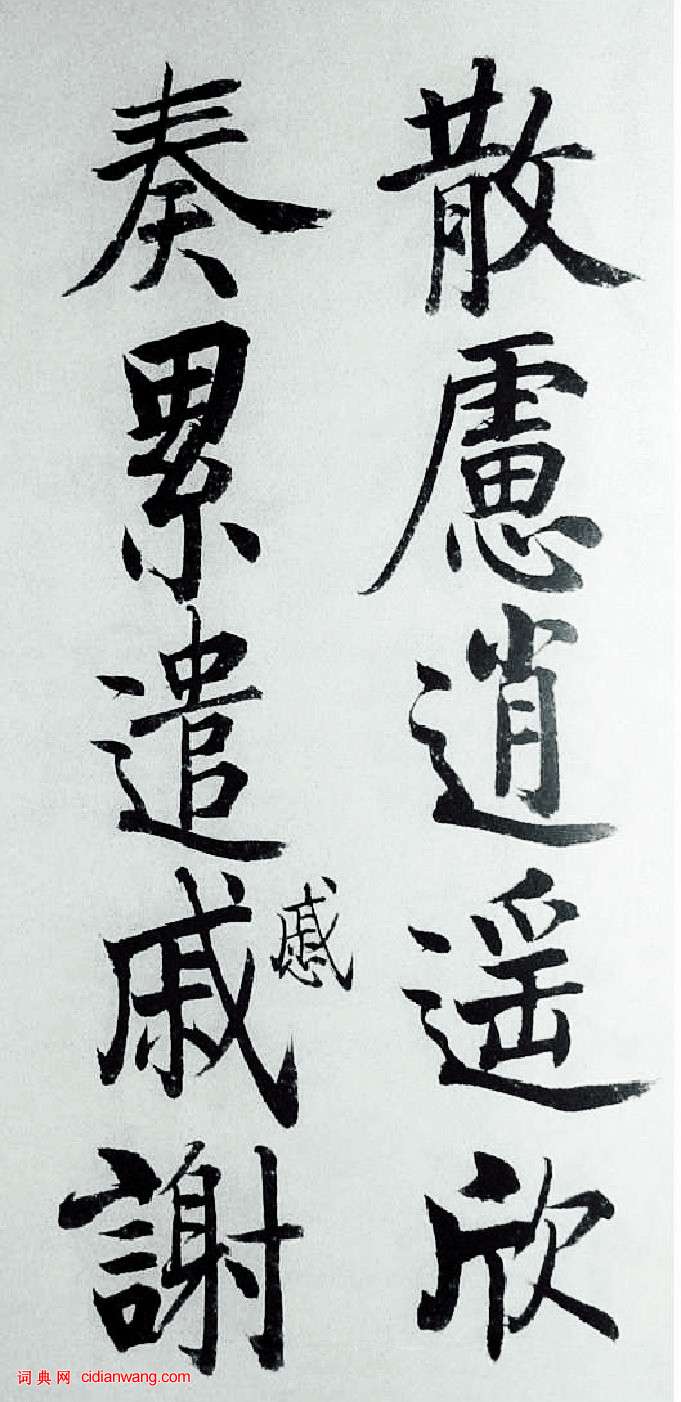 散慮逍遥欣
奏累遣戚謝
慼
词典网 cidianwang.com